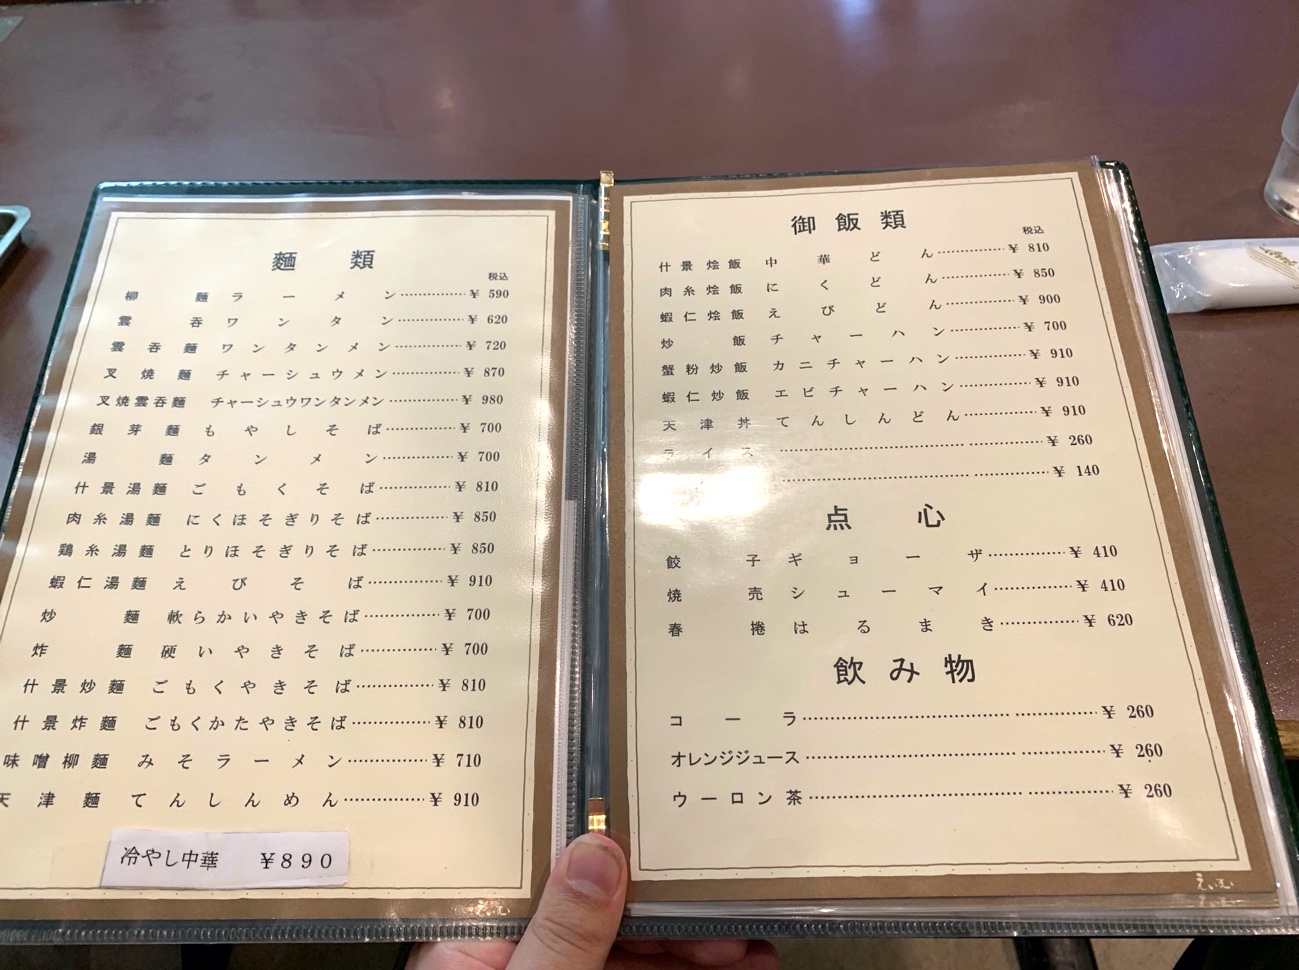 麵類
税込
柳麵 ラーメン ¥590
雲呑 ワンタン ¥620
雲呑麵 ワンタンメン ¥720
叉焼麵 チャーシュウメン ¥870
叉焼雲呑麵 チャーシュウワンタンメン ¥980
銀芽麵 もやしそば ¥700
湯麵 タンメン ¥700
什景湯麵 ごもくそば ¥810
肉糸湯麵 にくほそぎりそば ¥850
鶏糸湯麵 とりほそぎりそば ¥850
蝦仁湯麵 えびそば ¥910
炒麵 軟らかいやきそば ¥700
炸麵 硬いやきそば ¥700
什景炒麵 ごもくやきそば ¥810
什景炸麵 ごもくかたやきそば ¥810
味噌柳麵 みそラーメン ¥710
天津麵 てんしんめん ¥910
冷やし中華 ¥890
御飯類
税込
什景烩飯 中華どん ¥810
肉糸烩飯 にくどん ¥850
蝦仁烩飯 えびどん ¥900
炒飯 チャーハン ¥700
蟹粉炒飯 カニチャーハン ¥910
蝦仁炒飯 エビチャーハン ¥910
天津丼 てんしんどん ¥910
ライス ¥260
¥140
点心
餃子 ギョーザ ¥410
焼売 シューマイ ¥410
春捲 はるまき ¥620
飲み物
コーラ ¥260
オレンジジュース ¥260
ウーロン茶 ¥260